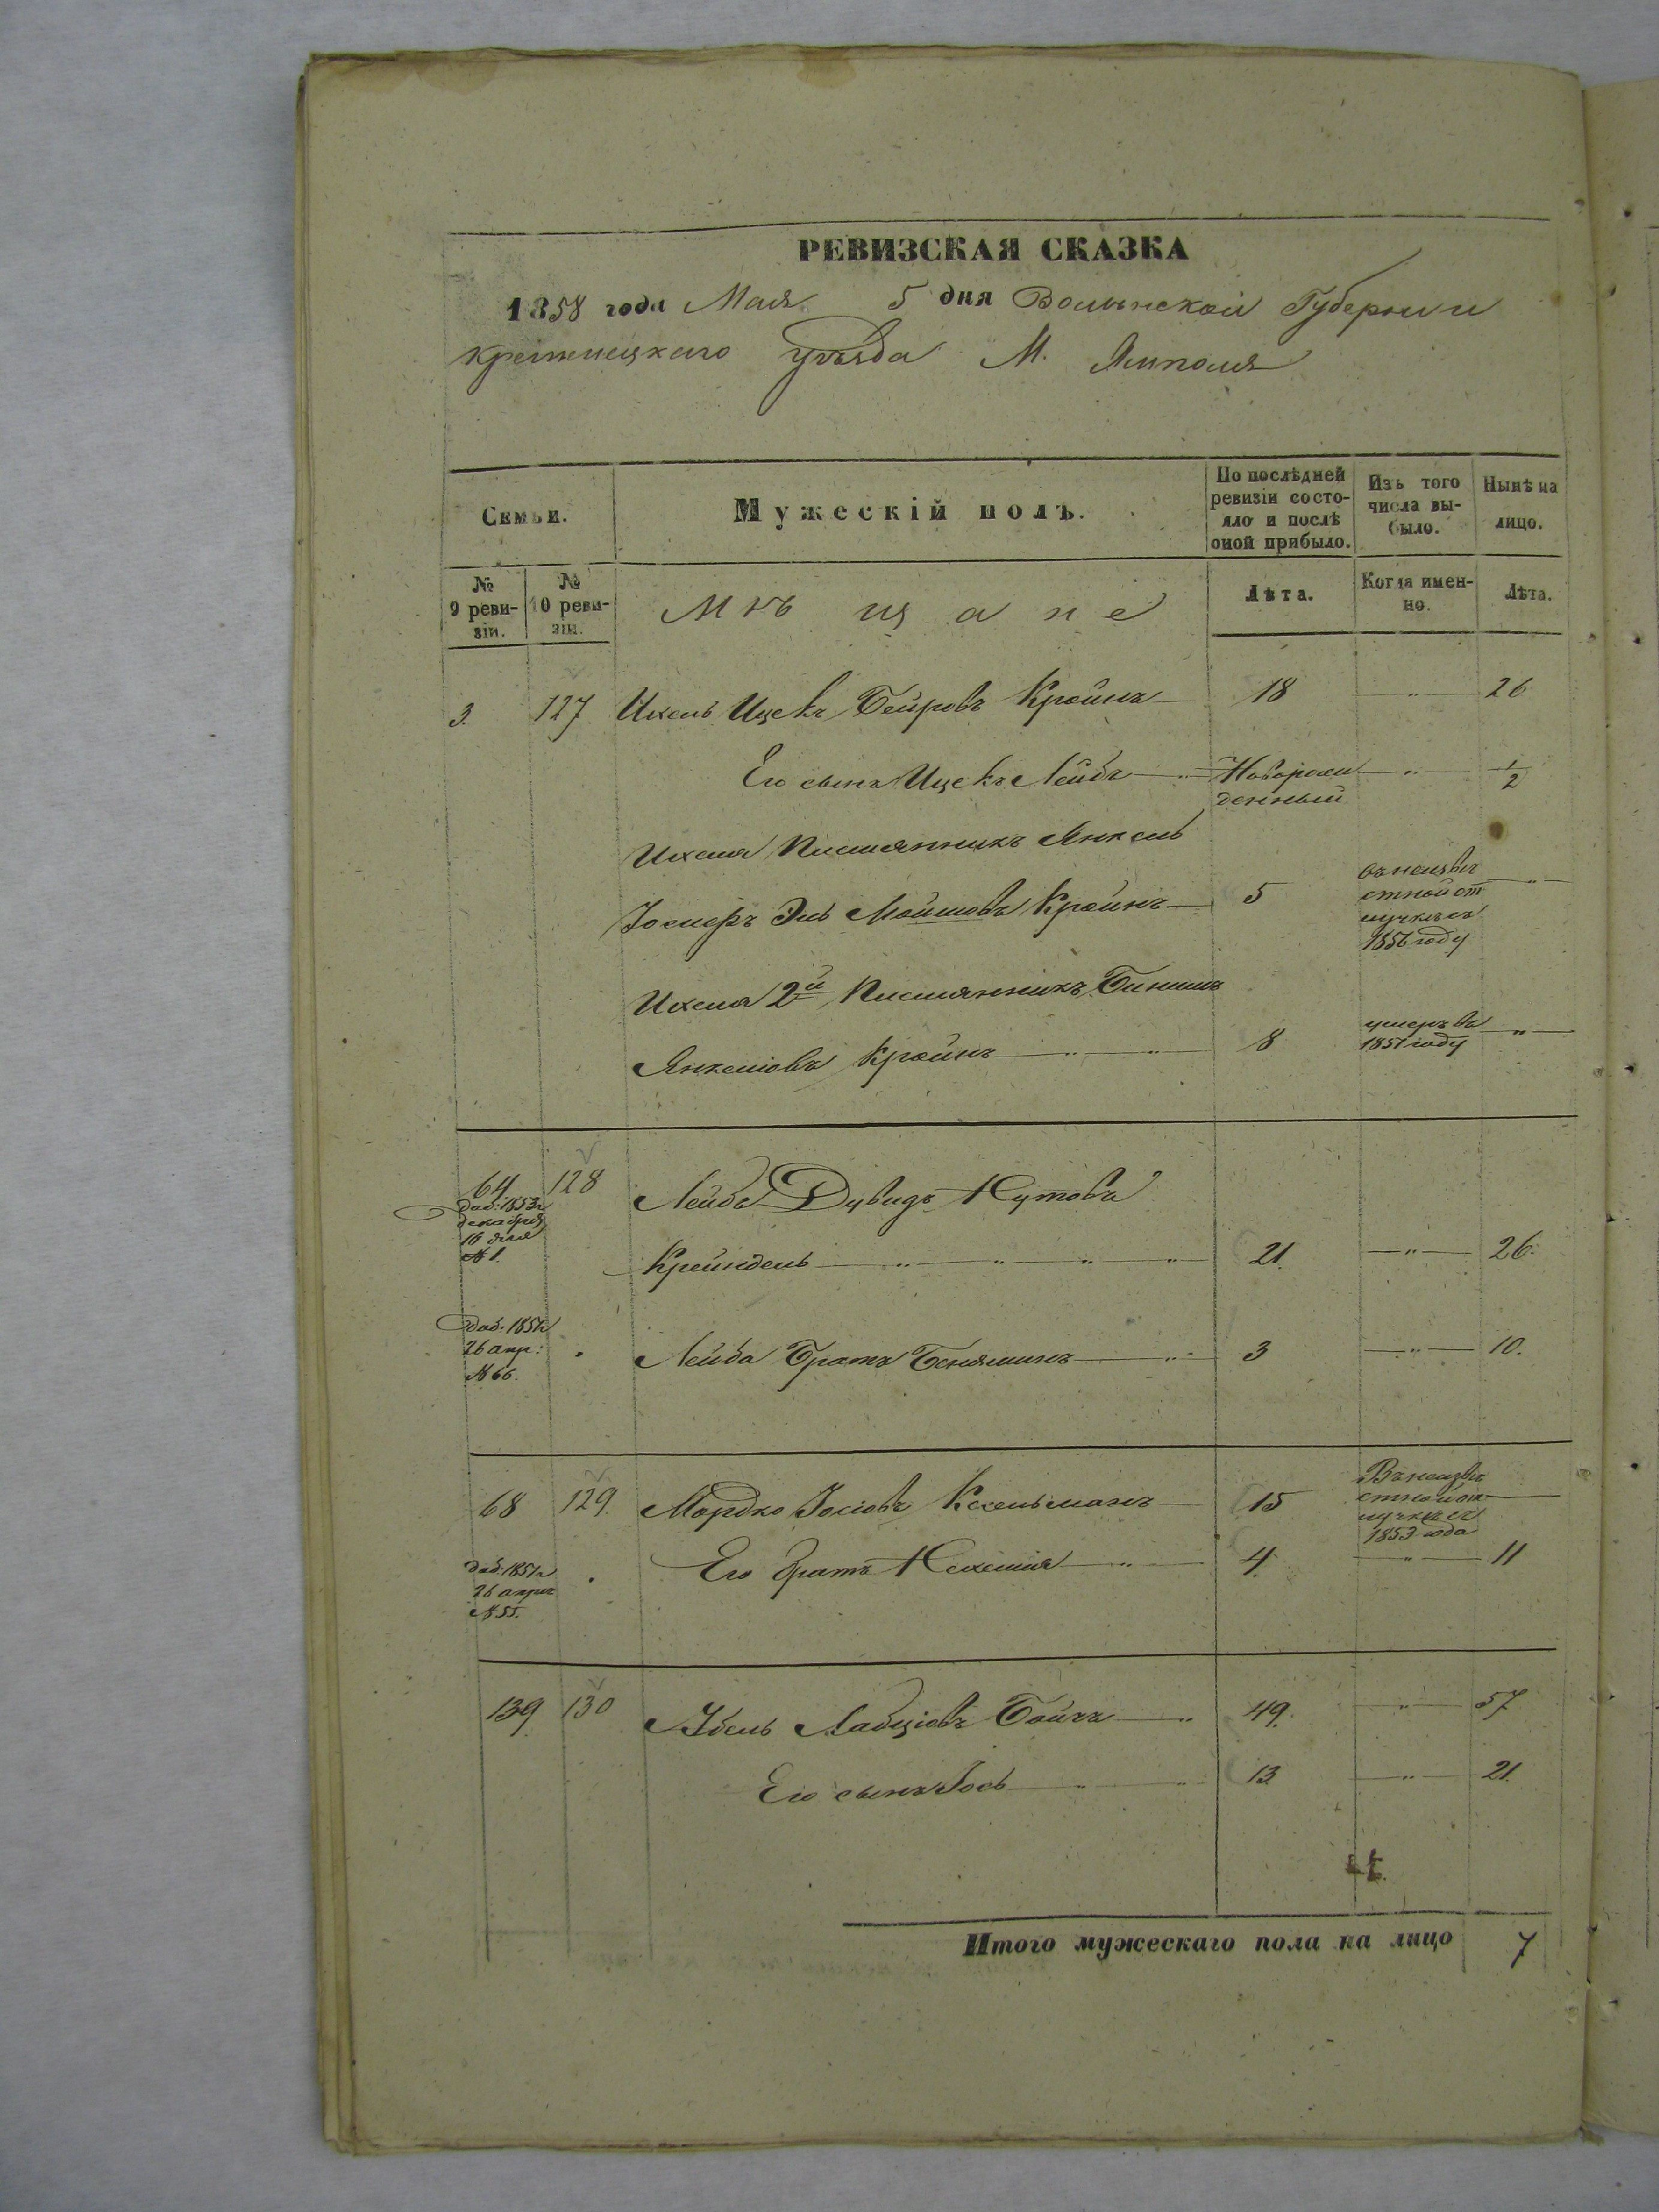 РЕВИЗСКАЯ СКАЗКА
1858 года Мая 5 дня Волынской Губернии
Кременецкаго уѣзда М. Ямполя
Семьи.
Мужескій полъ.
По послѣдней ревизіи состояло и послѣ оной прибыло.
Изъ того числа выбыло.
Нынѣ на лицо.
№ 9 ревизіи.
№ 10 ревизіи.
Мѣщане
Лѣта.
Когда именно.
Лѣта.
3. 127 Ихель Ицекъ Беировъ Кройнъ 18 — " — 26
Его сынъ Ицекъ Лейбъ — " — Новорожденный — " — 1/2
Ихеля Племянникъ Янкель
Іосиеръ Эль Мошковъ Кройнъ — 5 въ неизвѣстной отлучкѣ съ 1856 году — " —
Ихеля 2й Племянникъ Бенишъ
Янкеліовъ Кройнъ — " — " — 8 умеръ въ 1851 году — " —
64 128 Лейба Дувидъ Нутовъ
доб: 1853 г декабря 16 дня № 1.
Крейндель — " — " — " — " — 21. — " — 26.
доб: 1851 г 26 апр: № 66. Лейба Братъ Беняминъ — " — 3 — " — 10.
68 129. Мордко Іосіовъ Кесельманъ — 15 Въ неизвѣстной отлучкѣ съ 1853 года —
доб. 1851 г 26 апрѣ № 55. Его братъ Нехемія — " — 4. — " — 11
139. 130 Лабціовъ — " 49. — " — 57
Его сынъ Іось — " — " — 13 — " — 21.
Итого мужескаго пола на лицо 7